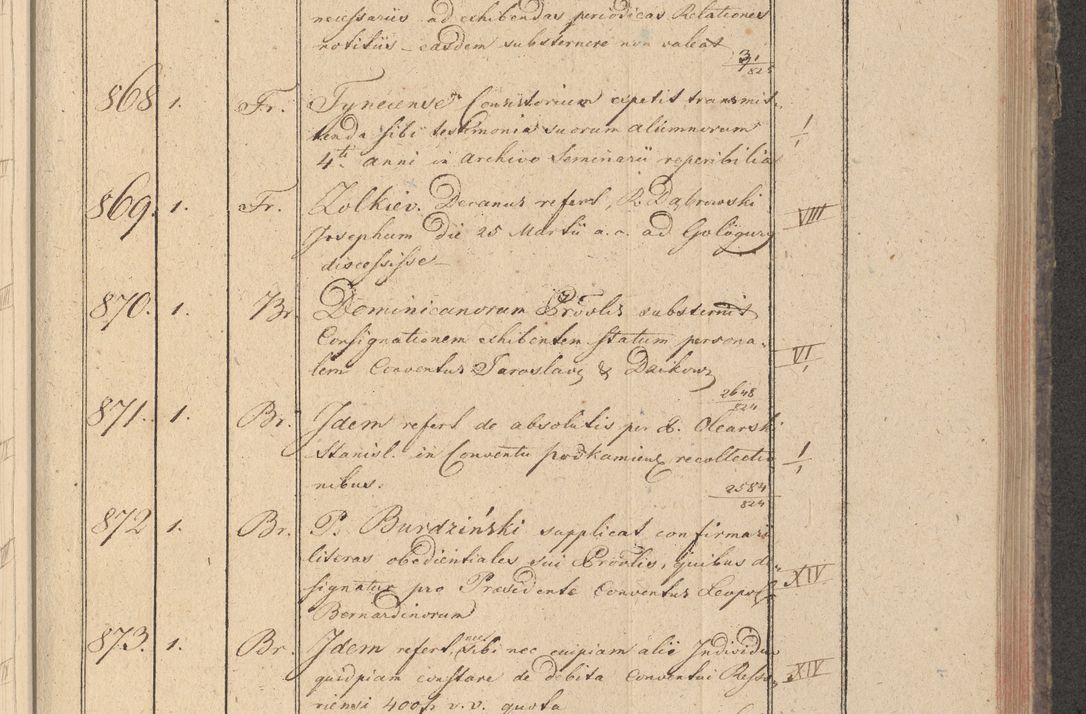 necessariis ad exhibendas periodicas Relationes
notitiis – easdem substernere non valeat
31/825
868 1. Fr. Tyneciense Consistorium expetit transmit-
tenda sibi testimonia suorum alumnorum I/1
4ti anni in Archivo Seminarii reperibilia
869. 1. Fr. Zolkiev. Decanus refert, R. Dąbrowski VIII
Josephum die 25 Martii a. c. ad Gologury
discessisse –
870. 1. Br. Dominicanorum Provlis substernit
Consignationem exhibentem statum persona- VI/1
lem Conventus Jaroslav. & Dzikow.
2648/824
871. 1. Br. Idem refert de absolutis per R. Learski
Stanisl. in Conventu podkamienc. recollectio I/1
nibus.
2584/824
872 1. Br. P. Burdziński supplicat confirmari
literas obedientiales sui Provlis, quibus de-
signatur pro Præsidente Conventus Leopol. XIV
Bernardinorum
873. 1. Br. Idem refert, nec sibi nec cuipiam alii Individuo
quidpiam constare de debita Conventui Resso- XIV
viensi 400 f v. v. quota